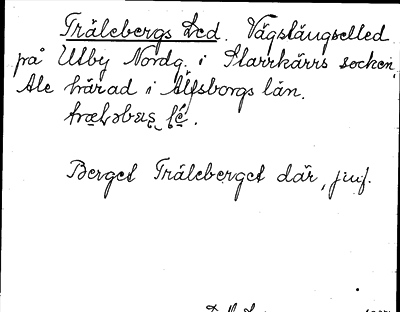 Trälebergs Led. Vägstängselled
på Ulby Nordg. i Starrkärrs socken,
Ale härad i Älfsborgs län.
Berget Träleberget där, jmf.